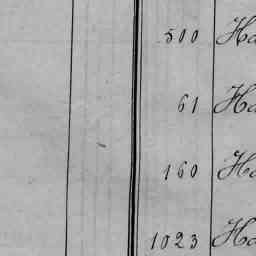 500 Ha
61 Ha
160 Ha
1023 Ha